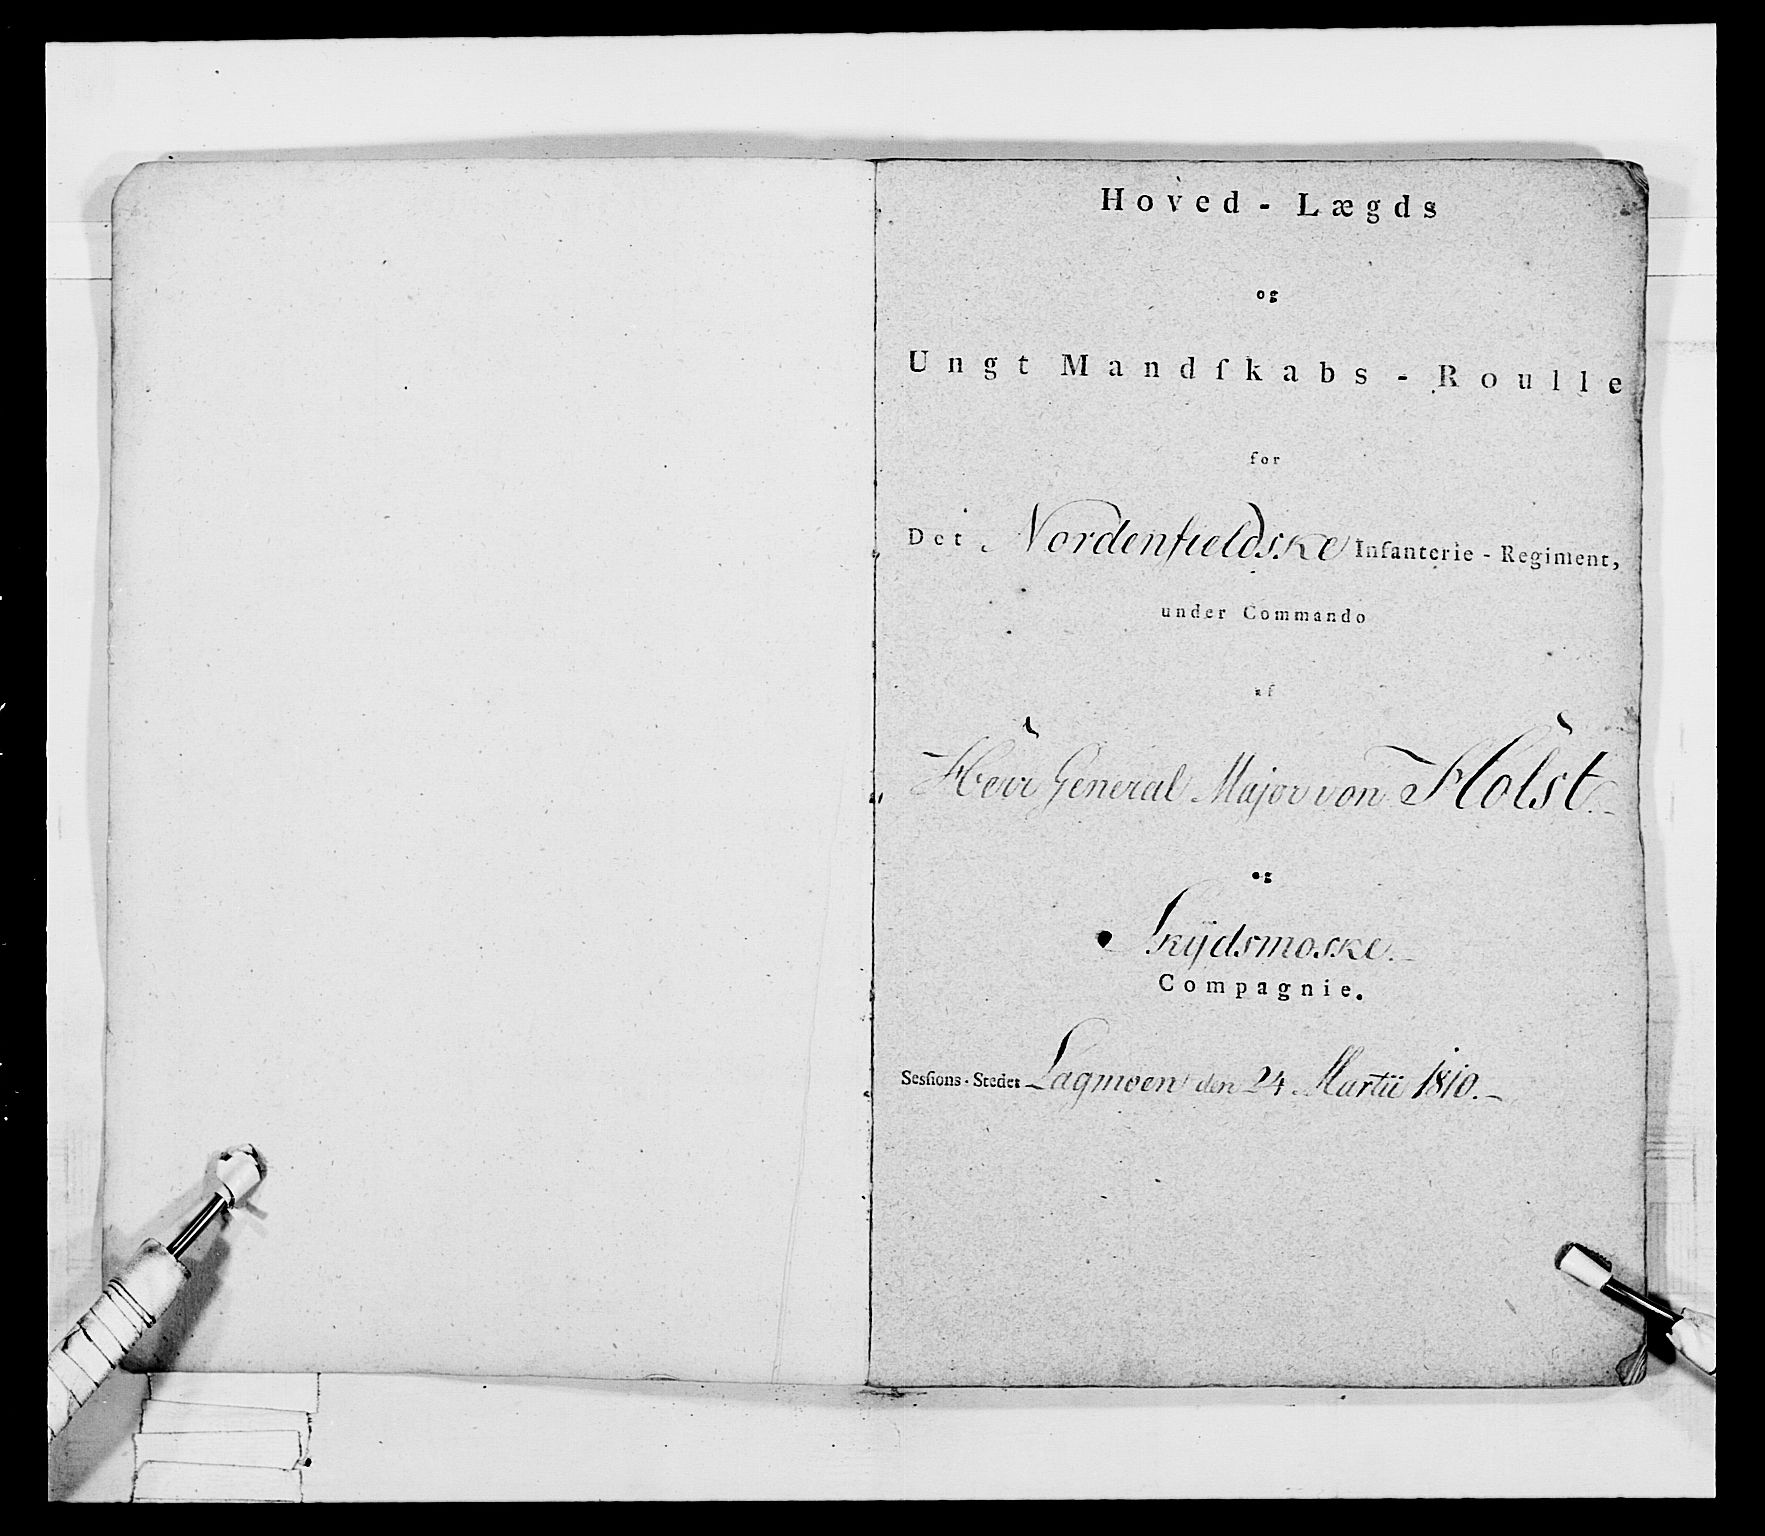 Hoved - Lægds
og
Ungt Mandſkabs - Roulle
for
Det Nordenfieldske Infanterie - Regiment,
under Commando
af
Herr General Major von Holst.
og
Skÿdsmoske
Compagnie.
Sesſions-Stedet Lagmoen den 24 Martii 1810.